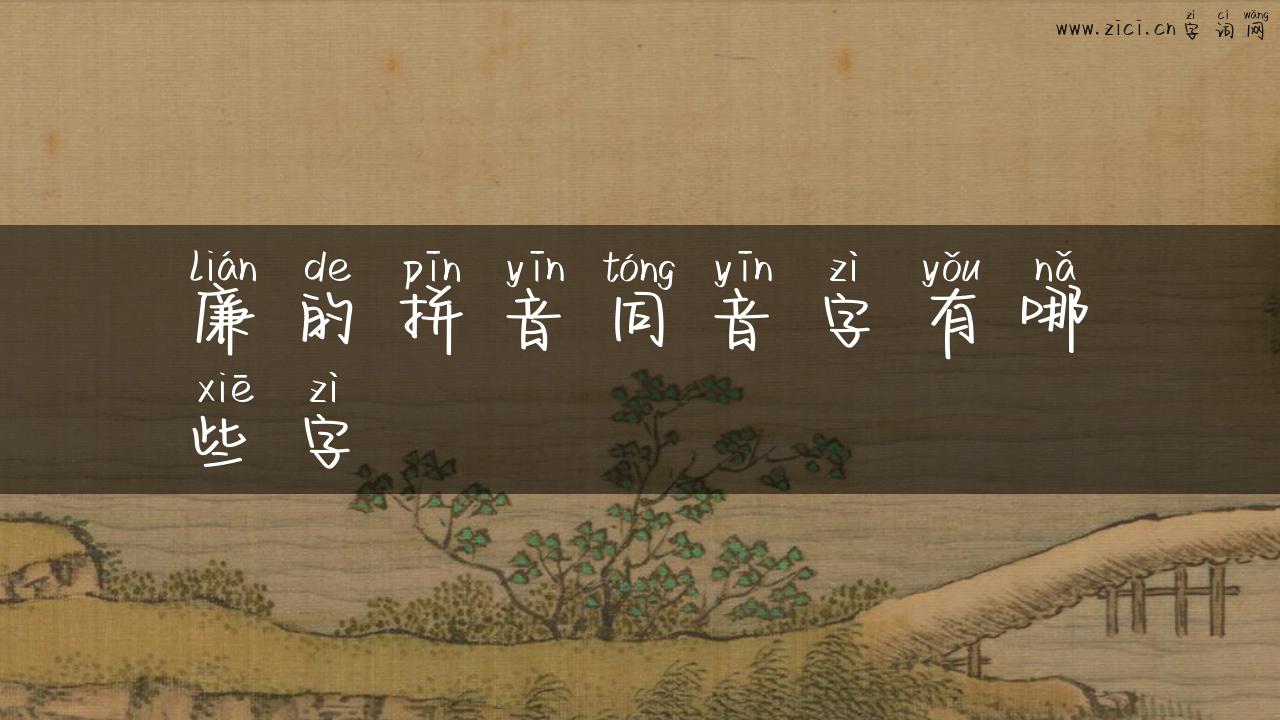 zì cí wǎng
www.zici.cn 字 词 网
lián de pīn yīn tóng yīn zì yǒu nǎ
廉 的 拼 音 同 音 字 有 哪
xiē zì
些 字